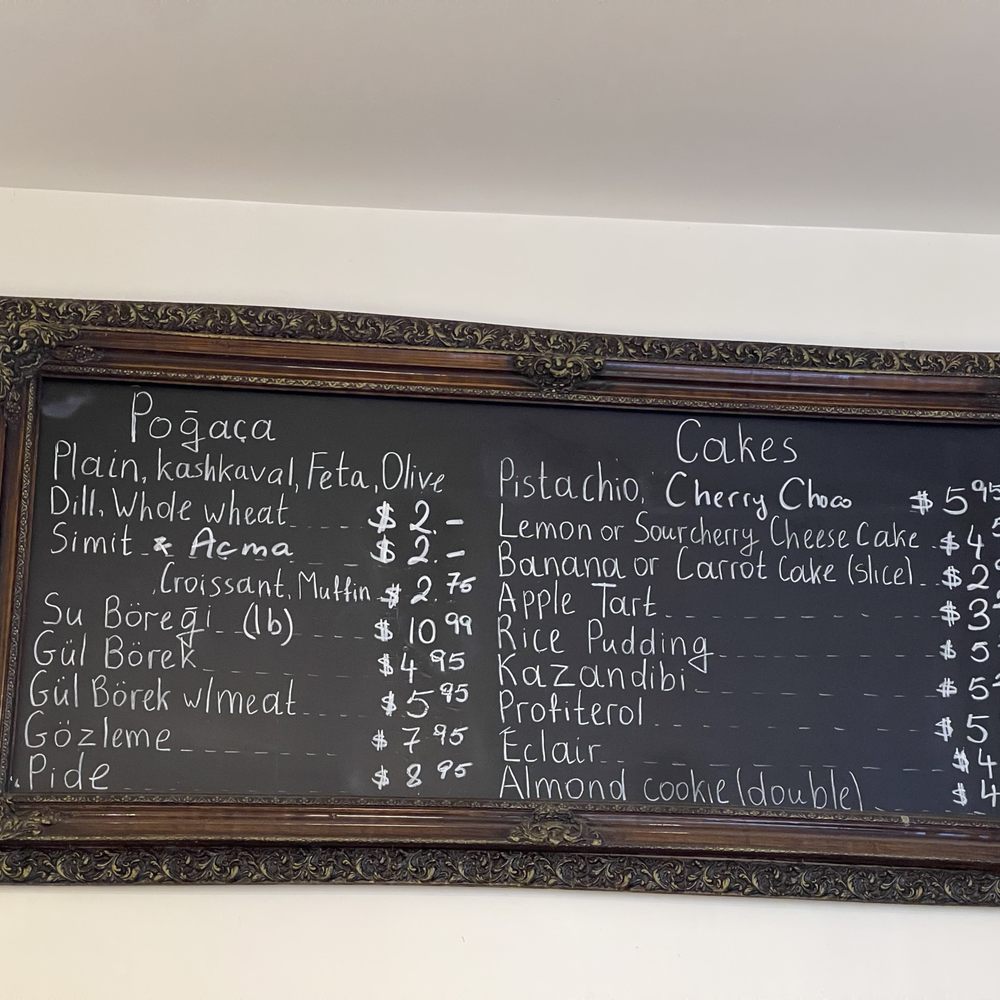 Poğaça
Plain, kashkaval, Feta, Olive
Dill, Whole wheat $2.-
Simit & Açma $2.-
Croissant, Muffin $2.75
Su Böreği (lb) $10 99
Gül Börek $4 95
Gül Börek w/meat $5 95
Gözleme $7 95
Pide $8 95
Cakes
Pistachio, Cherry Choco $5 95
Lemon or Sourcherry Cheese Cake $4
Banana or Carrot Cake (slice) $2
Apple Tart $3
Rice Pudding $5
Kazandibi $5
Profiterol $5
Eclair $4
Almond cookie (double) $4